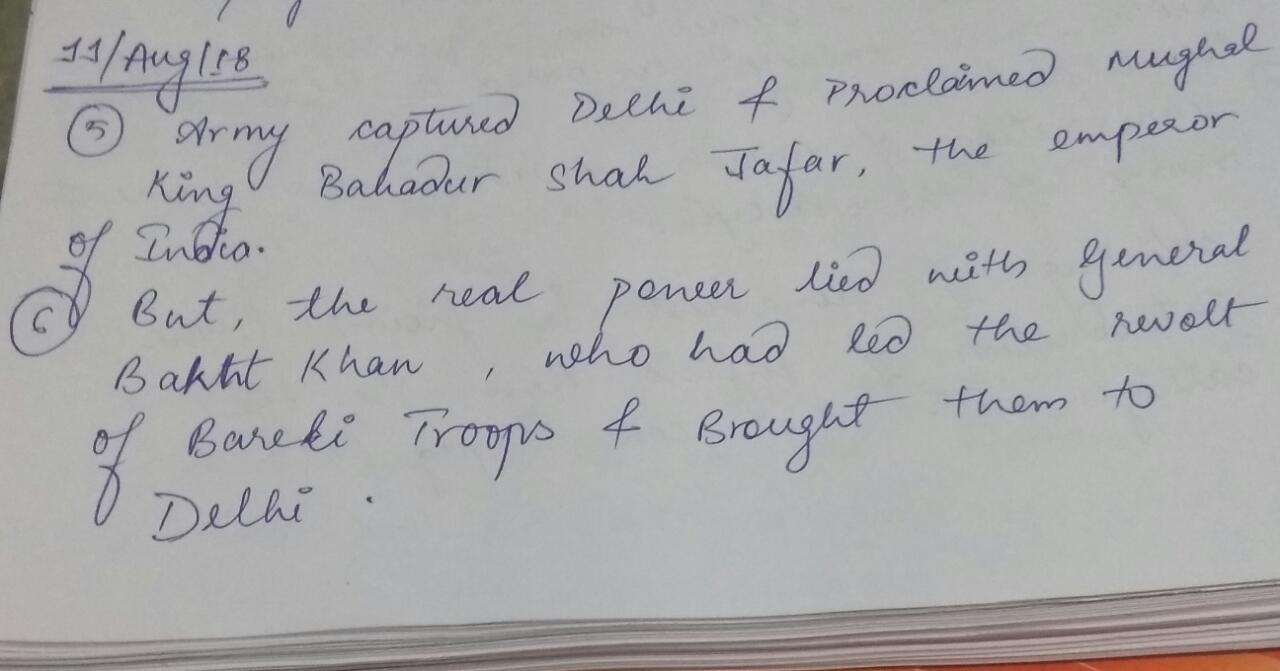 11/Aug/18
⑤ Army captured Delhi & Proclaimed Mughal
King Bahadur Shah Jafar, the emperor
of India.
⑥ But, the real power lied with General
Bakht Khan, who had led the revolt
of Bareli Troops & Brought them to
Delhi.